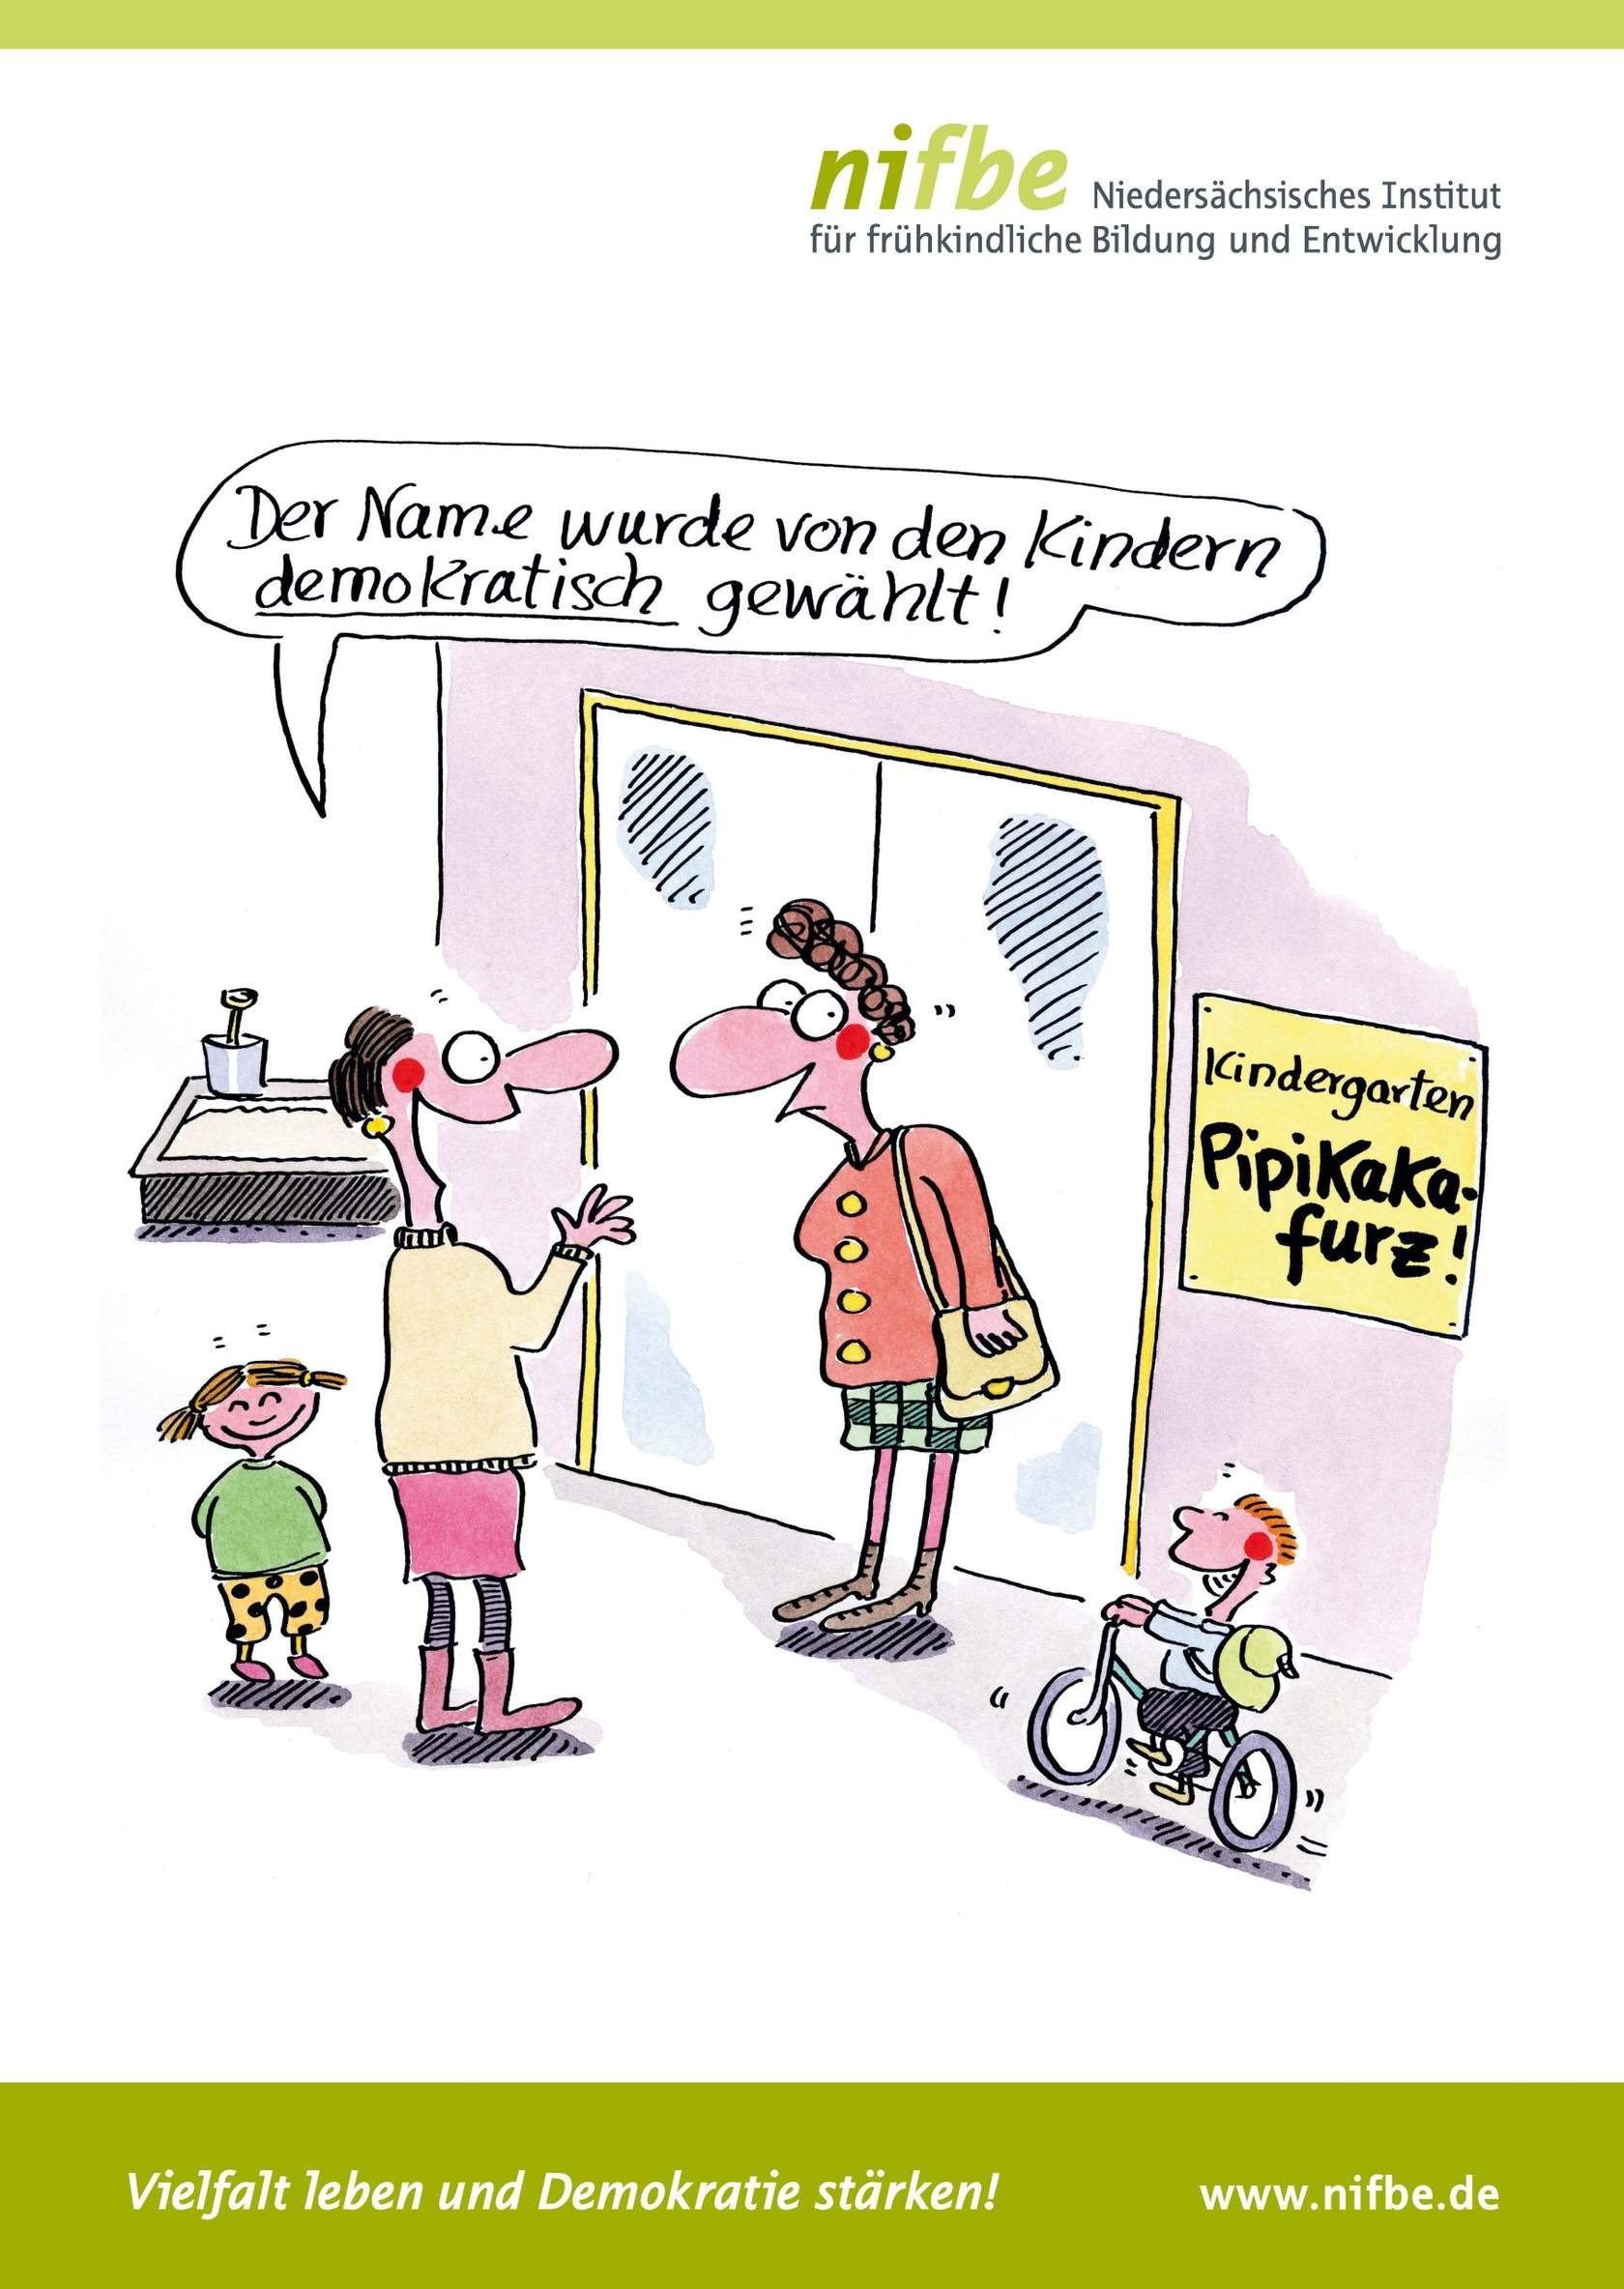 nifbe Niedersächsisches Institut
für frühkindliche Bildung und Entwicklung
Der Name wurde von den Kindern
demokratisch gewählt!
Kindergarten
PipiKaKa-
furz!
Vielfalt leben und Demokratie stärken!
www.nifbe.de